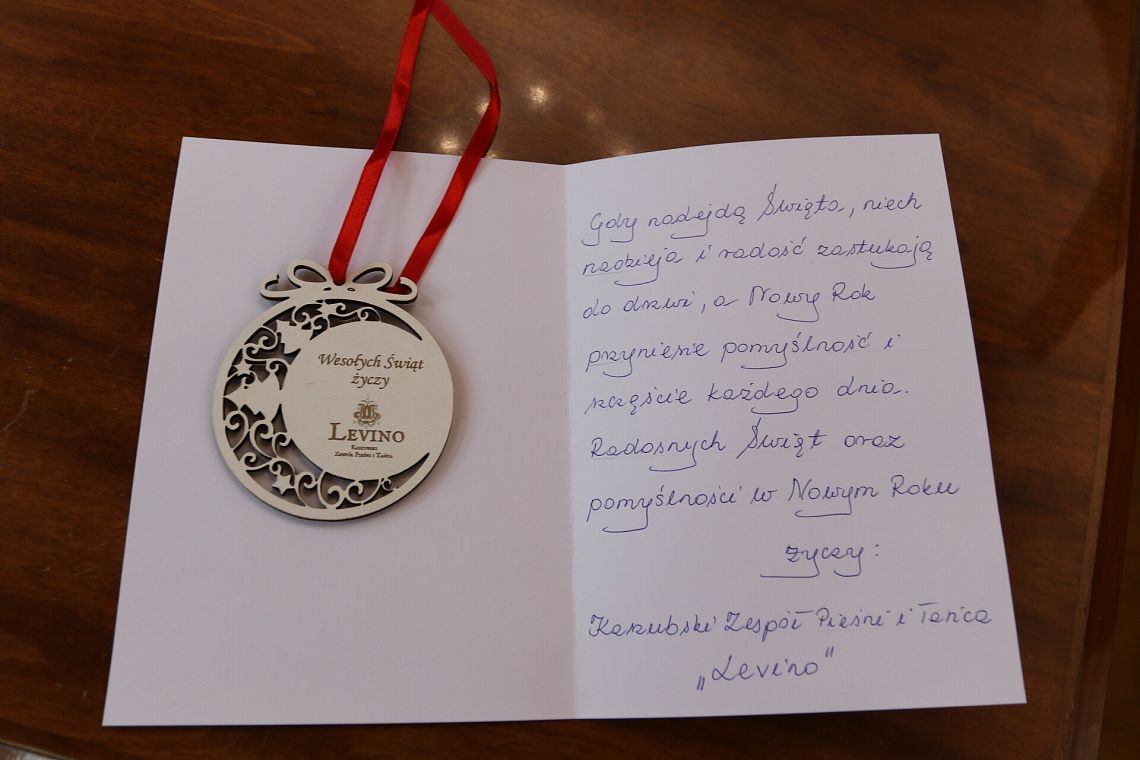 Wesołych Świąt
życzy
LEVINO
KASZUBSKI
ZESPÓŁ PIEŚNI I TAŃCA
Gdy nadejdą Święta, niech
nadzieja i radość zastukają
do drzwi, a Nowy Rok
przyniesie pomyślność i
szczęście każdego dnia.
Radosnych Świąt oraz
pomyślności w Nowym Roku
życzy:
Kaszubski Zespół Pieśni i Tańca
„Levino"